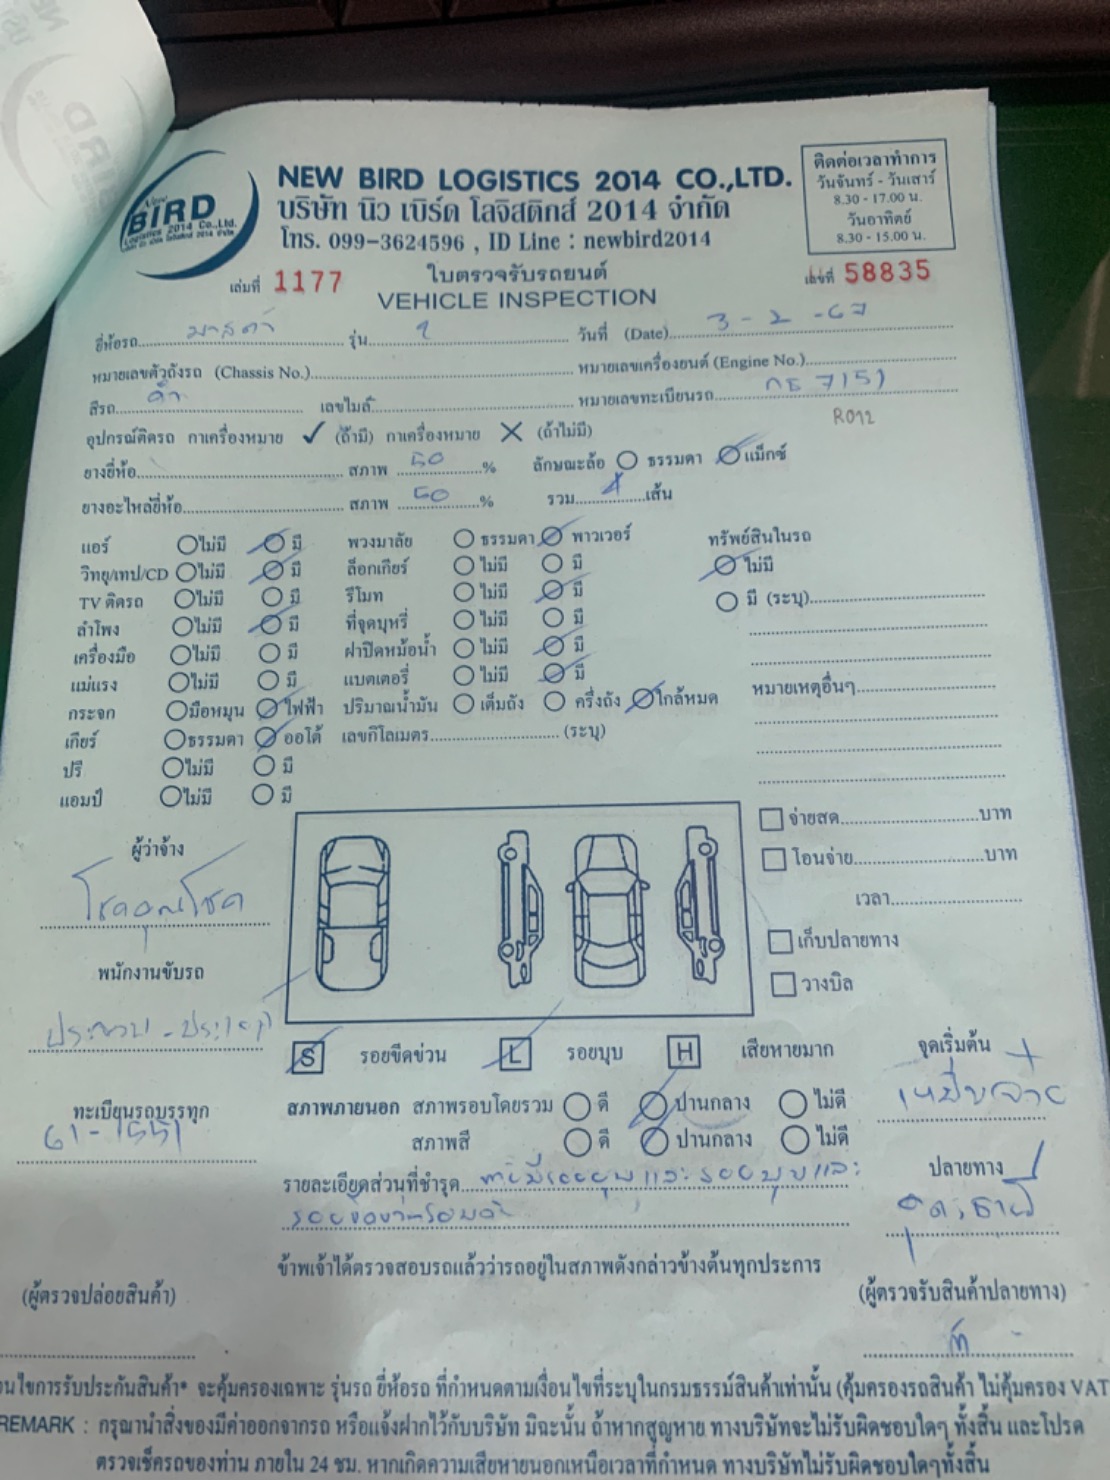 New
BIRD
Logistics 2014 Co.,Ltd.
บริษัท นิว เบิร์ด โลจิสติกส์ 2014 จำกัด
NEW BIRD LOGISTICS 2014 CO.,LTD.
บริษัท นิว เบิร์ด โลจิสติกส์ 2014 จำกัด
โทร. 099-3624596 , ID Line : newbird2014
ติดต่อเวลาทำการ
วันจันทร์ - วันเสาร์
8.30 - 17.00 น.
วันอาทิตย์
8.30 - 15.00 น.
เล่มที่ 1177
ใบตรวจรับรถยนต์
เลขที่ 58835
VEHICLE INSPECTION
ยี่ห้อรถ มาสด้า รุ่น 2 วันที่ (Date) 3-2-67
หมายเลขตัวถังรถ (Chassis No.) หมายเลขเครื่องยนต์ (Engine No.)
สีรถ ดำ เลขไมล์ หมายเลขทะเบียนรถ 7151
R012
อุปกรณ์ติดรถ กาเครื่องหมาย ✓ (ถ้ามี) กาเครื่องหมาย ✕ (ถ้าไม่มี)
ยางยี่ห้อ สภาพ 50 % ลักษณะล้อ ธรรมดา แม็กซ์
ยางอะไหล่ยี่ห้อ สภาพ 50 % รวม 4 เส้น
แอร์ ไม่มี มี พวงมาลัย ธรรมดา พาวเวอร์ ทรัพย์สินในรถ
วิทยุ/เทป/CD ไม่มี มี ล็อกเกียร์ ไม่มี มี ไม่มี
TV ติดรถ ไม่มี มี รีโมท ไม่มี มี มี (ระบุ)
ลำโพง ไม่มี มี ที่จุดบุหรี่ ไม่มี มี
เครื่องมือ ไม่มี มี ฝาปิดหม้อน้ำ ไม่มี มี
แม่แรง ไม่มี มี แบตเตอรี่ ไม่มี มี หมายเหตุอื่นๆ
กระจก มือหมุน ไฟฟ้า ปริมาณน้ำมัน เต็มถัง ครึ่งถัง ใกล้หมด
เกียร์ ธรรมดา ออโต้ เลขกิโลเมตร (ระบุ)
ปรี ไม่มี มี
แอมป์ ไม่มี มี
จ่ายสด บาท
ผู้ว่าจ้าง
โอนจ่าย บาท
โชคคุณโชค
เวลา
เก็บปลายทาง
พนักงานขับรถ
วางบิล
S รอยขีดข่วน L รอยบุบ H เสียหายมาก
จุดเริ่มต้น
ทะเบียนรถบรรทุก
สภาพภายนอก สภาพรอบโดยรวม ดี ปานกลาง ไม่ดี
61-1551
สภาพสี ดี ปานกลาง ไม่ดี
ปลายทาง
รายละเอียดส่วนที่ชำรุด และรอยบุบและ
อุดรธานี
ข้าพเจ้าได้ตรวจสอบรถแล้วว่ารถอยู่ในสภาพดังกล่าวข้างต้นทุกประการ
(ผู้ตรวจปล่อยสินค้า) (ผู้ตรวจรับสินค้าปลายทาง)
นไขการรับประกันสินค้า* จะคุ้มครองเฉพาะ รุ่นรถ ยี่ห้อรถ ที่กำหนดตามเงื่อนไขที่ระบุในกรมธรรม์สินค้าเท่านั้น (คุ้มครองรถสินค้า ไม่คุ้มครอง VAT
REMARK : กรุณานำสิ่งของมีค่าออกจากรถ หรือแจ้งฝากไว้กับบริษัท มิฉะนั้น ถ้าหากสูญหาย ทางบริษัทจะไม่รับผิดชอบใดๆ ทั้งสิ้น และโปรด
ตรวจเช็ครถของท่าน ภายใน 24 ชม. หากเกิดความเสียหายนอกเหนือเวลาที่กำหนด ทางบริษัทไม่รับผิดชอบใดๆทั้งสิ้น